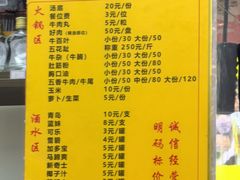 火锅区
汤底 20元/份
餐位费 3元/位
牛肉丸 5元/粒
好肉 50元/盘
牛百叶 小份/30 大份/50
五花趾 称重 250元/斤
牛杂（牛腩） 小份/30 大份/50
肚筋粉 小份/30 大份/50
胸口油 小份/30 大份/50
五香牛肉/牛尾 小份/50 中份/80 大份/120
玉米 10元/份
萝卜/生菜 5元/份
酒水区
青岛 10元/支
蓝妹 8元/支
可乐 3元/罐
雪碧 4元/罐
加多宝 5元/罐
马蹄爽 5元/罐
新奇士 5元/罐
椰子汁 5元/罐
诚信经营
明码标价